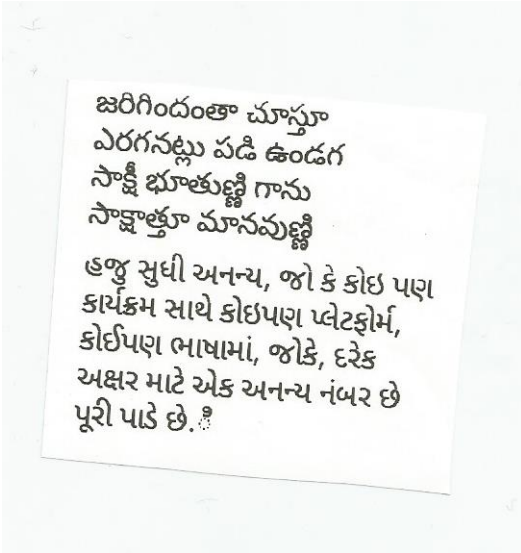 జరిగిందంతా చూస్తూ
ఎరగనట్లు పడి ఉండగ
సాక్షీ భూతుణ్ణి గాను
సాక్షాత్తూ మానవుణ్ణి
હજુ સુધી અનન્ય, જો કે કોઇ પણ
કાર્યક્રમ સાથે કોઇપણ પ્લેટફોર્મ,
કોઈપણ ભાષામાં, જોકે, દરેક
અક્ષર માટે એક અનન્ય નંબર છે
પૂરી પાડે છે.ૈં